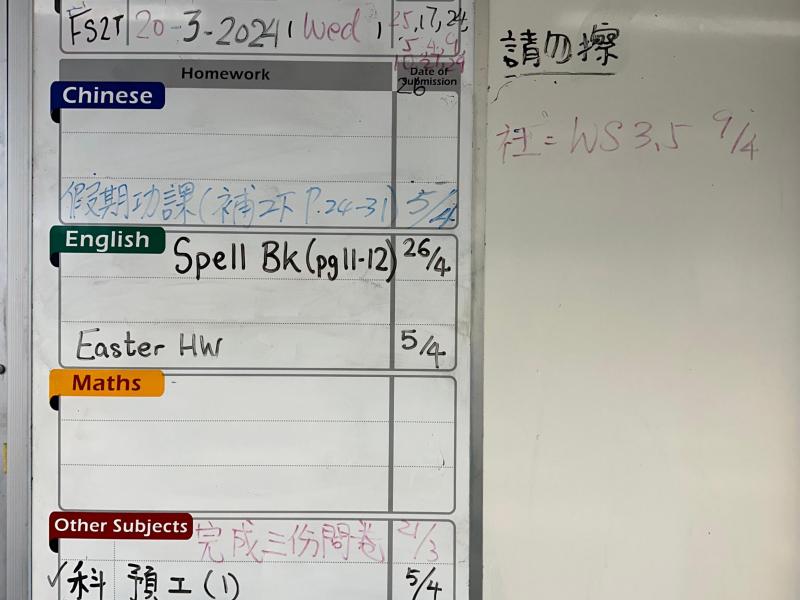 FS2T 20-3-2024 ( Wed ) 25,17,24,
5,4,9
10,27,29
26
Homework Date of Submission
Chinese
假期功課(補工下 P.24-31) 5/4
English
Spell Bk (pg11-12) 26/4
Easter HW 5/4
Maths
Other Subjects 完成三份問卷 21/3
✓科 預工(1) 5/4
請勿擦
社= WS 3,5 9/4